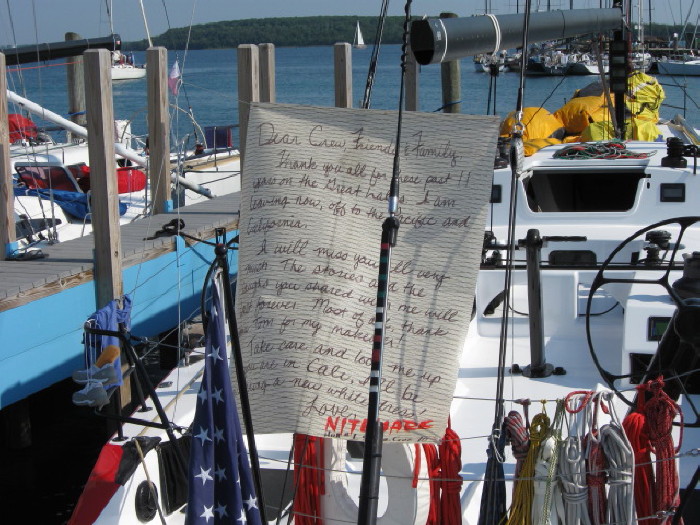 Dear Crew, Friends & Family
Thank you all for these past 11
years on the Great Lakes. I am
leaving now, off to the Pacific and
California.
I will miss you all very
much. The stories and the
you shared with me will
forever. Most of all thank
Tom for my makeover!
Take care and look me up
in Cali, I'll be
a new white dress!
Love,
NITEMARE